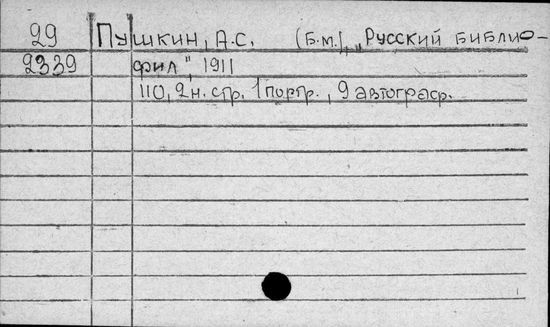 29 Пушкин, А.С. (Б.м.), „Русский Библио-
2339 фил", 1911
110, 2 н. стр. 1 портр., 9 автограф.